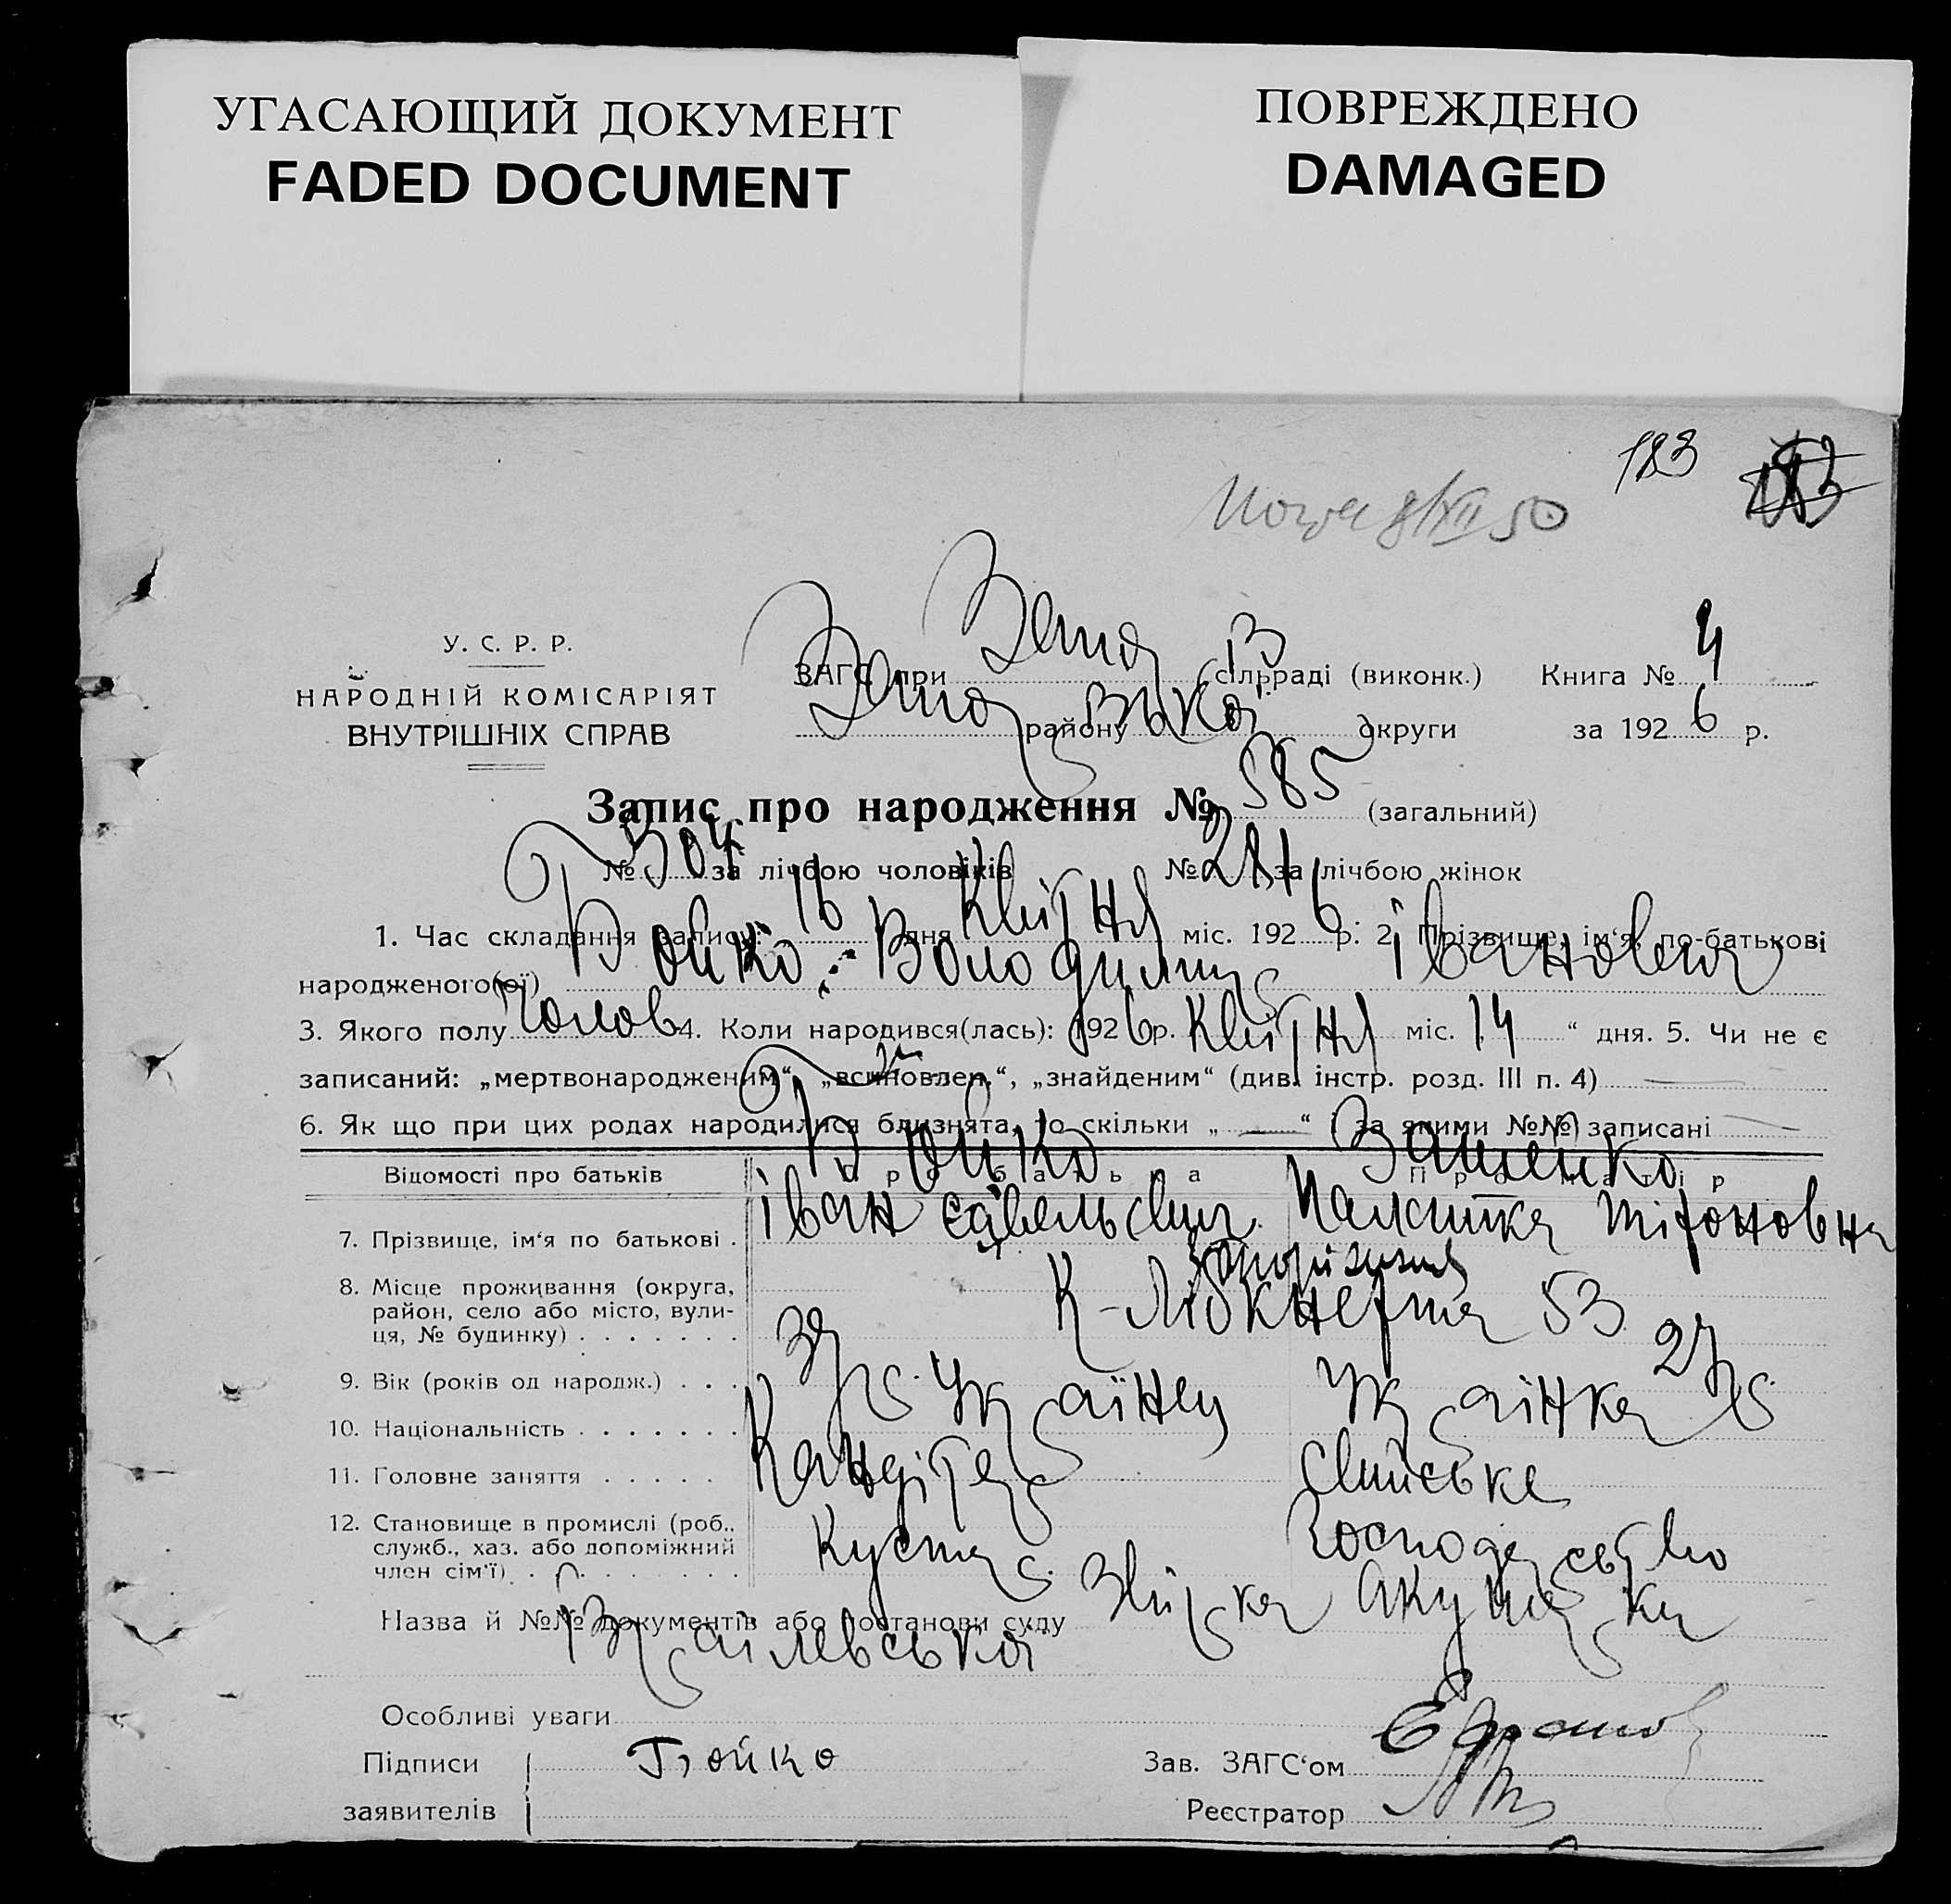 УГАСАЮЩИЙ ДОКУМЕНТ
FADED DOCUMENT
ПОВРЕЖДЕНО
DAMAGED
183
8/XII 50
У. С. Р. Р.
НАРОДНІЙ КОМІСАРІЯТ
ВНУТРІШНІХ СПРАВ
ЗАГС при Запор сільраді (виконк.) Книга № 4
Запор району округи за 1926 р.
Запис про народження № 585 (загальний)
№ 304 за лічбою чоловіків № 281 за лічбою жінок
1. Час складання запису: „ 16 дня Квітня міс. 1926 р. 2. Прізвище, ім‘я, по-батькові
народженого(ої) Бойко Володимир Іванович
3. Якого полу Чолов 4. Коли народився(лась): 1926 р. Квітня міс. 14 “ дня. 5. Чи не є
записаний: „мертвонародженим“, „всиновлен.“, „знайденим“ (див. інстр. розд. III п. 4)
6. Як що при цих родах народилися близнята, то скільки „ — “ і за якими №№ записані
Відомості про батьків Про батька Про матір
7. Прізвище, ім‘я по батькові . Бойко Іван Савельевич Тіхоновна
8. Місце проживання (округа, район, село або місто, вулиця, № будинку) . . . . . . . Запоріжжя К-Лібкнехта 53
9. Вік (років од народж.) . . . 27 р.
10. Національність . . . . . . . Українец Українка
11. Головне заняття . . . . . Кандітер Свійське
12. Становище в промислі (роб., служб., хаз. або допоміжний член сім‘ї) . . . . . . . . Кустар Господарство
Назва й №№ документів або постанови суду Звірка Акушерки
Ізраілевської
Особливі уваги
Підписи Бойко Зав. ЗАГС‘ом
заявителів Реєстратор